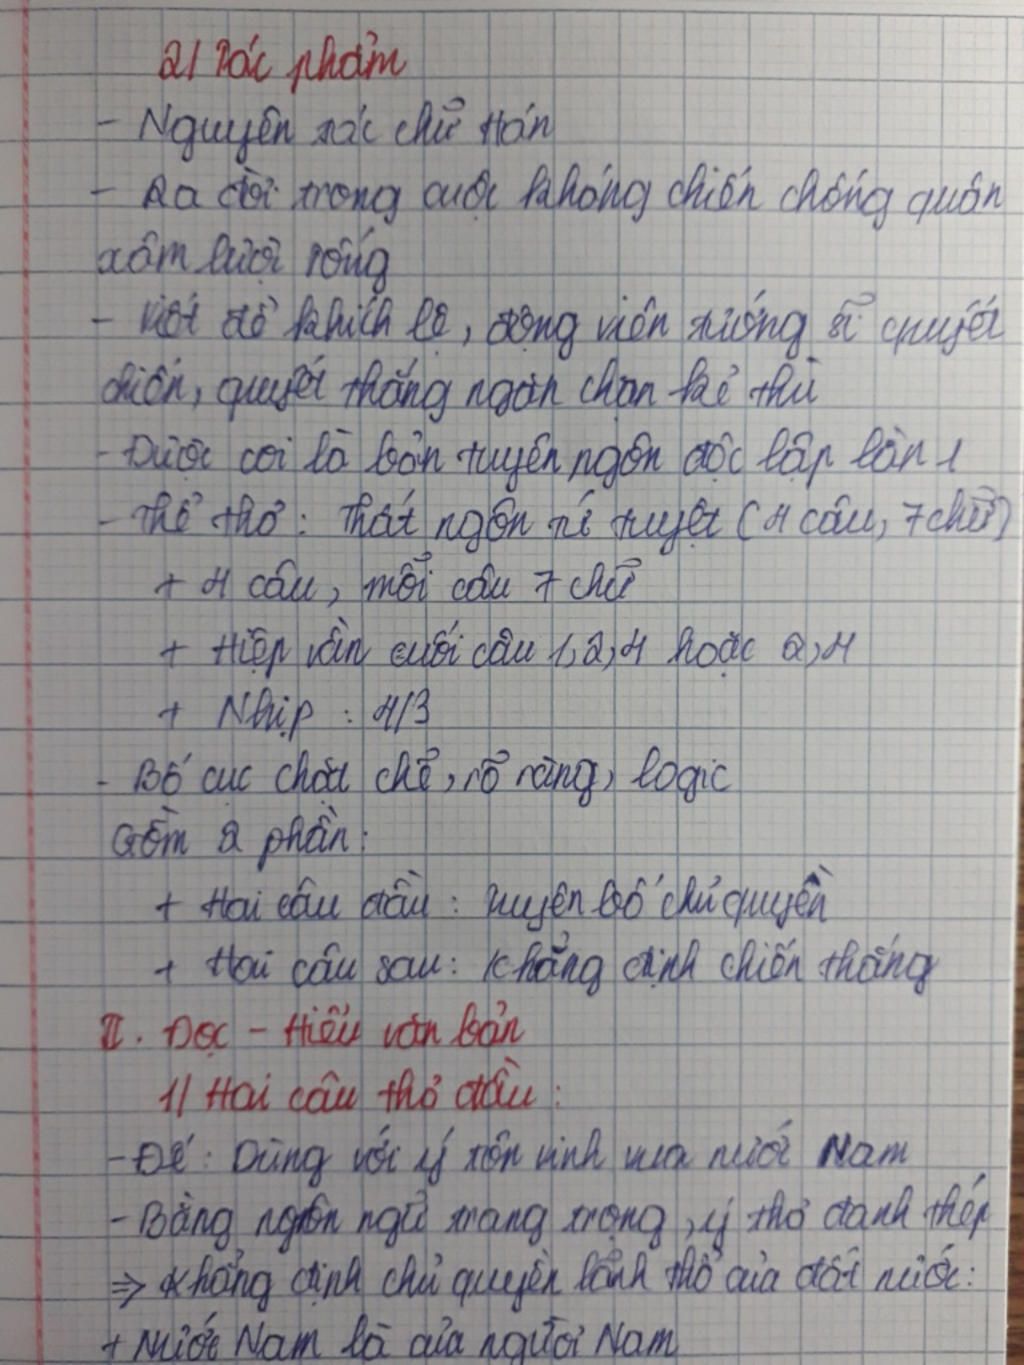 2/ Tác phẩm
- Nguyên tác chữ Hán
- Ra đời trong cuộc kháng chiến chống quân
xâm lược Tống
- Viết để khích lệ, động viên tướng sĩ quyết
chiến, quyết thắng ngăn chặn kẻ thù
- Được coi là bản tuyên ngôn độc lập lần 1
- Thể thơ: Thất ngôn tứ tuyệt (4 câu, 7 chữ)
+ 4 câu, mỗi câu 7 chữ
+ Hiệp vần cuối câu 1,2,4 hoặc 2,4
+ Nhịp : 4/3
- Bố cục chặt chẽ, rõ ràng, logic
Gồm 2 phần:
+ Hai câu đầu : Tuyên bố chủ quyền
+ Hai câu sau: Khẳng định chiến thắng
II. Đọc - Hiểu văn bản
1/ Hai câu thơ đầu :
- Đế : Dùng với ý tôn vinh vua nước Nam
- Bằng ngôn ngữ trang trọng, ý thơ đanh thép
⇒ Khẳng định chủ quyền lãnh thổ của đất nước:
+ Nước Nam là của người Nam